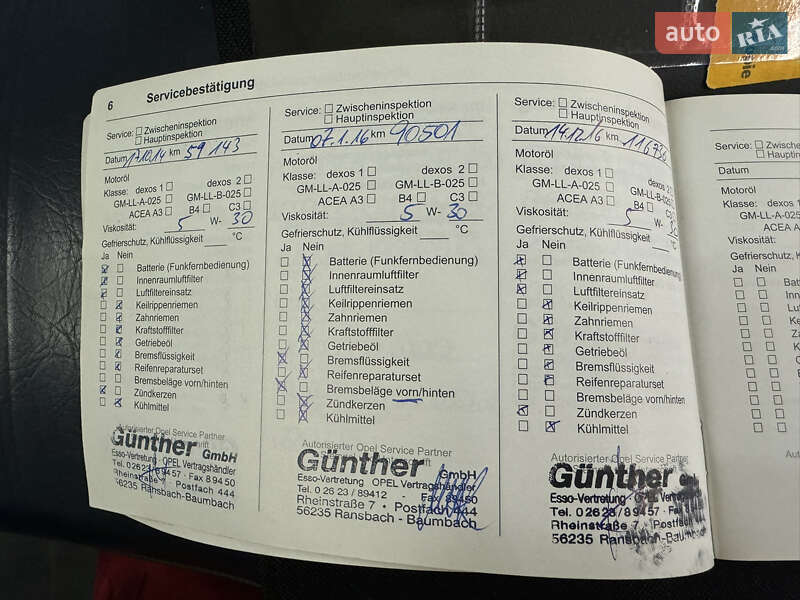 auto RIA
6 Servicebestätigung
Service: Zwischeninspektion
Hauptinspektion
Datum 17.10.14 km 59 143
Motoröl
Klasse: dexos 1 dexos 2
GM-LL-A-025 GM-LL-B-025
ACEA A3 B4 C3
Viskosität: 5 W- 30
Gefrierschutz, Kühlflüssigkeit °C
Ja Nein
Batterie (Funkfernbedienung)
Innenraumluftfilter
Luftfiltereinsatz
Keilrippenriemen
Zahnriemen
Kraftstofffilter
Getriebeöl
Bremsflüssigkeit
Reifenreparaturset
Bremsbeläge vorn/hinten
Zündkerzen
Kühlmittel
Autorisierter Opel Service Partner
Günther GmbH
Esso-Vertretung · OPEL Vertragshändler
Tel. 02623/89457 · Fax 89450
Rheinstraße 7 · Postfach 444
56235 Ransbach-Baumbach
Service: Zwischeninspektion
Hauptinspektion
Datum 07.1.16 km 90501
Motoröl
Klasse: dexos 1 dexos 2
GM-LL-A-025 GM-LL-B-025
ACEA A3 B4 C3
Viskosität: 5 W- 30
Gefrierschutz, Kühlflüssigkeit °C
Ja Nein
Batterie (Funkfernbedienung)
Innenraumluftfilter
Luftfiltereinsatz
Keilrippenriemen
Zahnriemen
Kraftstofffilter
Getriebeöl
Bremsflüssigkeit
Reifenreparaturset
Bremsbeläge vorn/hinten
Zündkerzen
Kühlmittel
Autorisierter Opel Service Partner
Günther GmbH
Esso-Vertretung OPEL Vertragshändler
Tel. 0 26 23 / 89412 - Fax 89450
Rheinstraße 7 · Postfach 444
56235 Ransbach - Baumbach
Service: Zwischeninspektion
Hauptinspektion
Datum 14.12.16 km
Motoröl
Klasse: dexos 1 dexos 2
GM-LL-A-025 GM-LL-B-025
ACEA A3 B4 C3
Viskosität: 5 W-
Gefrierschutz, Kühlflüssigkeit °C
Ja Nein
Batterie (Funkfernbedienung)
Innenraumluftfilter
Luftfiltereinsatz
Keilrippenriemen
Zahnriemen
Kraftstofffilter
Getriebeöl
Bremsflüssigkeit
Reifenreparaturset
Bremsbeläge vorn/hinten
Zündkerzen
Kühlmittel
Autorisierter Opel Service Partner
Günther
Esso-Vertretung OPEL Vertragshändler
Tel. 02623/89457 · Fax
Rheinstraße 7 · Postfach
56235 Ransbach-Baumbach
Service: Zwischeninspektion
Hauptinspektion
Datum
Motoröl
Klasse: dexos 1
GM-LL-A-025
ACEA A3
Viskosität:
Gefrierschutz, Kühlflüssig
Ja Nein